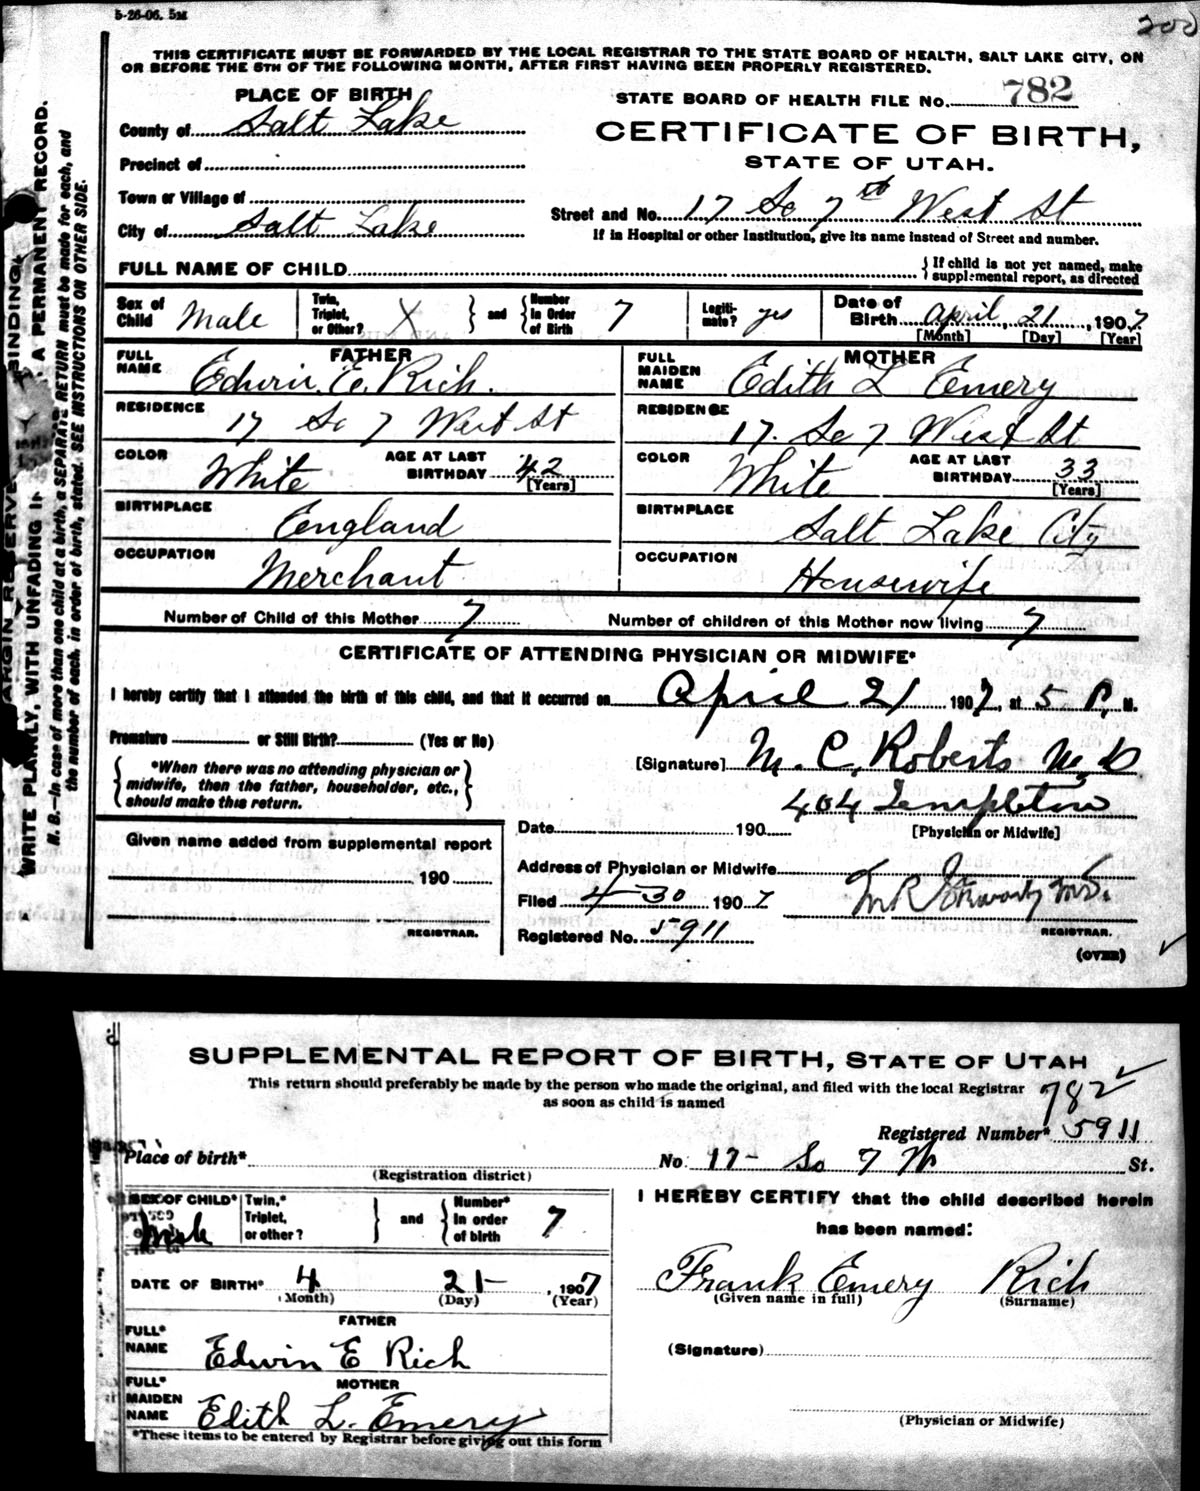 5-26-06. 5M
200
THIS CERTIFICATE MUST BE FORWARDED BY THE LOCAL REGISTRAR TO THE STATE BOARD OF HEALTH, SALT LAKE CITY, ON
OR BEFORE THE 5TH OF THE FOLLOWING MONTH, AFTER FIRST HAVING BEEN PROPERLY REGISTERED.
PLACE OF BIRTH
STATE BOARD OF HEALTH FILE No. 782
County of Salt Lake
CERTIFICATE OF BIRTH,
STATE OF UTAH.
Precinct of
Town or Village of
Street and No. 17 So 7th West St
City of Salt Lake
If in Hospital or other Institution, give its name instead of Street and number.
FULL NAME OF CHILD
{ If child is not yet named, make
supplemental report, as directed
Sex of Child Male
Twin, Triplet, or Other? X } and { Number In Order of Birth 7
Legiti-mate? yes
Date of Birth April, 21, 1907
[Month] [Day] [Year]
FATHER
FULL NAME Edwin. E. Rich.
MOTHER
FULL MAIDEN NAME Edith L Emery
RESIDENCE 17 So 7 West St
RESIDENCE 17. So 7 West St
COLOR White AGE AT LAST BIRTHDAY 42 [Years]
COLOR White AGE AT LAST BIRTHDAY 33 [Years]
BIRTHPLACE England
BIRTHPLACE Salt Lake City
OCCUPATION Merchant
OCCUPATION Housewife
Number of Child of this Mother 7 Number of children of this Mother now living 7
CERTIFICATE OF ATTENDING PHYSICIAN OR MIDWIFE*
I hereby certify that I attended the birth of this child, and that it occurred on April 21 1907, at 5 P. M.
Premature or Still Birth? (Yes or No)
[Signature] M. C. Roberts M.D
{ *When there was no attending physician or
midwife, then the father, householder, etc.,
should make this return. }
404 Templeton
Date 190 [Physician or Midwife]
Given name added from supplemental report
190
REGISTRAR.
Address of Physician or Midwife
Filed 4-30 1907
Registered No. 5911
REGISTRAR.
(OVER)
MARGIN RESERVED BINDING
WRITE PLAINLY, WITH UNFADING A PERMANENT RECORD.
N. B.—In case of more than one child at a birth, a SEPARATE RETURN must be made for each, and
the number of each, in order of birth, stated. SEE INSTRUCTIONS ON OTHER SIDE.
SUPPLEMENTAL REPORT OF BIRTH, STATE OF UTAH
This return should preferably be made by the person who made the original, and filed with the local Registrar
as soon as child is named
782
Registered Number* 5911
Place of birth*
(Registration district)
No 17- So 7 W St.
SEX OF CHILD* Male
Twin,* Triplet, or other? } and { Number* In order of birth 7
I HEREBY CERTIFY that the child described herein
has been named:
DATE OF BIRTH* 4 21- , 1907
(Month) (Day) (Year)
Frank Emery Rich
(Given name in full) (Surname)
FATHER
FULL* NAME Edwin E Rich
(Signature)
MOTHER
FULL* MAIDEN NAME Edith L. Emery
(Physician or Midwife)
*These items to be entered by Registrar before giving out this form